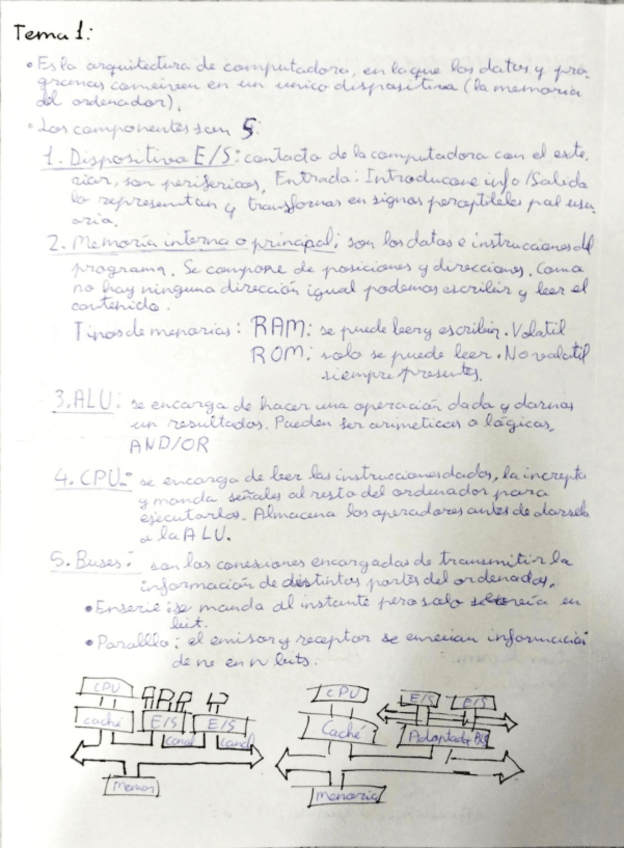 Tema 1:
• Es la arquitectura de computadora, en la que los datos y pro-
gramas coexisten en un unico dispositivo (la memoria
del ordenador).
• Los componentes son 5:
1. Dispositivo E/S: contacto de la computadora con el exte-
rior, son perifericos, Entrada: Introducen info/Salida
lo representan y transforman en signos perceptibles pal usu-
ario.
2. Memoria interna o principal: son los datos e instrucciones del
programa. Se compone de posiciones y direcciones. Como
no hay ninguna dirección igual podemos escribir y leer el
contenido.
Tipos de memorias: RAM: se puede leer y escribir. Volatil
ROM: solo se puede leer. No volatil
siempre presentes.
3. ALU: se encarga de hacer una operación dada y darnos
un resultados. Pueden ser arimeticas o lógicas,
AND/OR
4. CPU: se encarga de leer las instrucciones dados, la
y manda señales al resto del ordenador para
ejecutarlos. Almacena los operadores antes de darsela
a la ALU.
5. Buses: son las conexiones encargadas de transmitir la
información de distintas partes del ordenador.
• En serie: se manda al instante pero solo se envía en
bit.
• Paralelo: el emisor y receptor se envian información
de n en n bits.
CPU
caché E/S E/S
canal canal
Memori
CPU E/S E/S
Caché Adaptador
Memoria